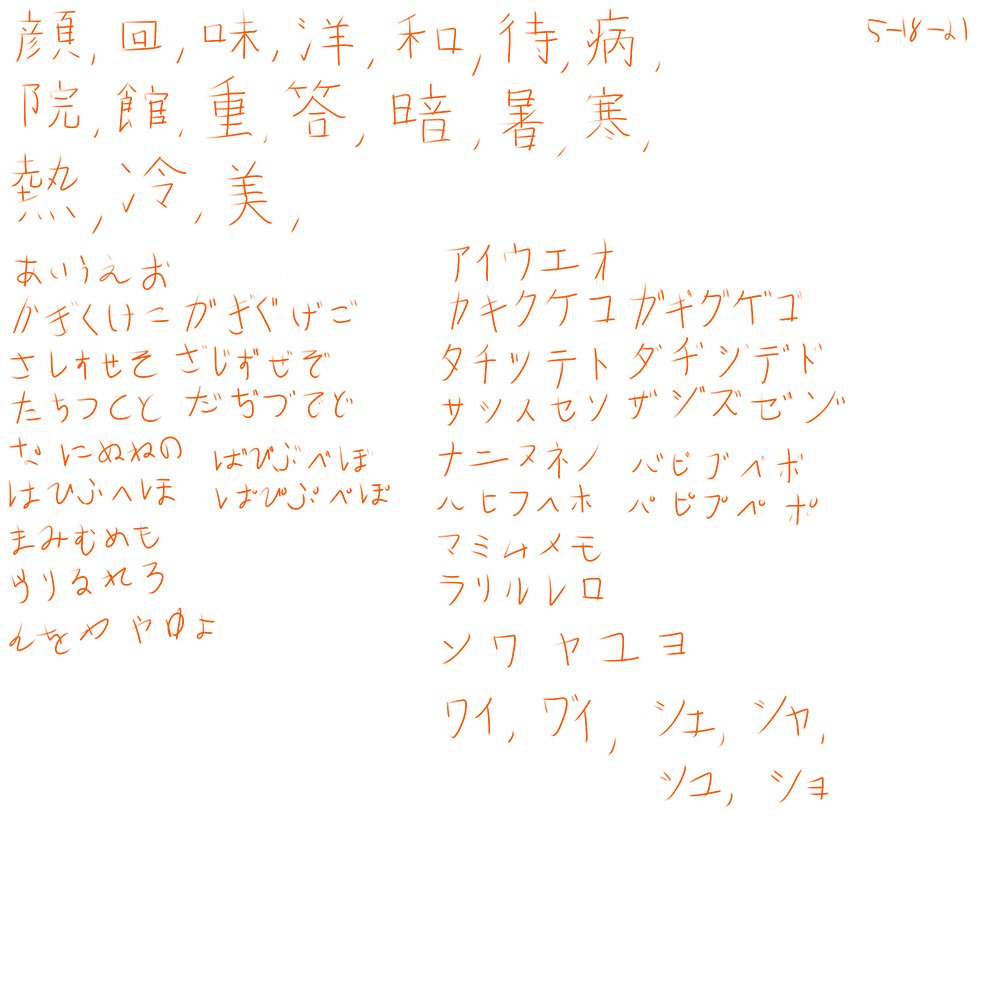 顔, 回, 味, 洋, 和, 待, 病, 5-18-21
院, 館, 重, 答, 暗, 暑, 寒,
熱, 冷, 美,
あいうえお
かぎくけこ がぎぐげご
さしすせそ ざじずぜぞ
たちつくと だぢづでど
なにぬねの ばびぶべぼ
はひふへほ ぱぴぷぺぽ
まみむめも
りるれろ
んをわ やゆよ
アイウエオ
カキクケコ ガギグゲゴ
タチツテト ダヂヅデド
サシスセソ ザジズゼゾ
ナニヌネノ バビブベボ
ハヒフヘホ パピプペポ
マミムメモ
ラリルレロ
ンワ ヤユヨ
ワイ, ヴイ, シェ, シャ,
シュ, ショ